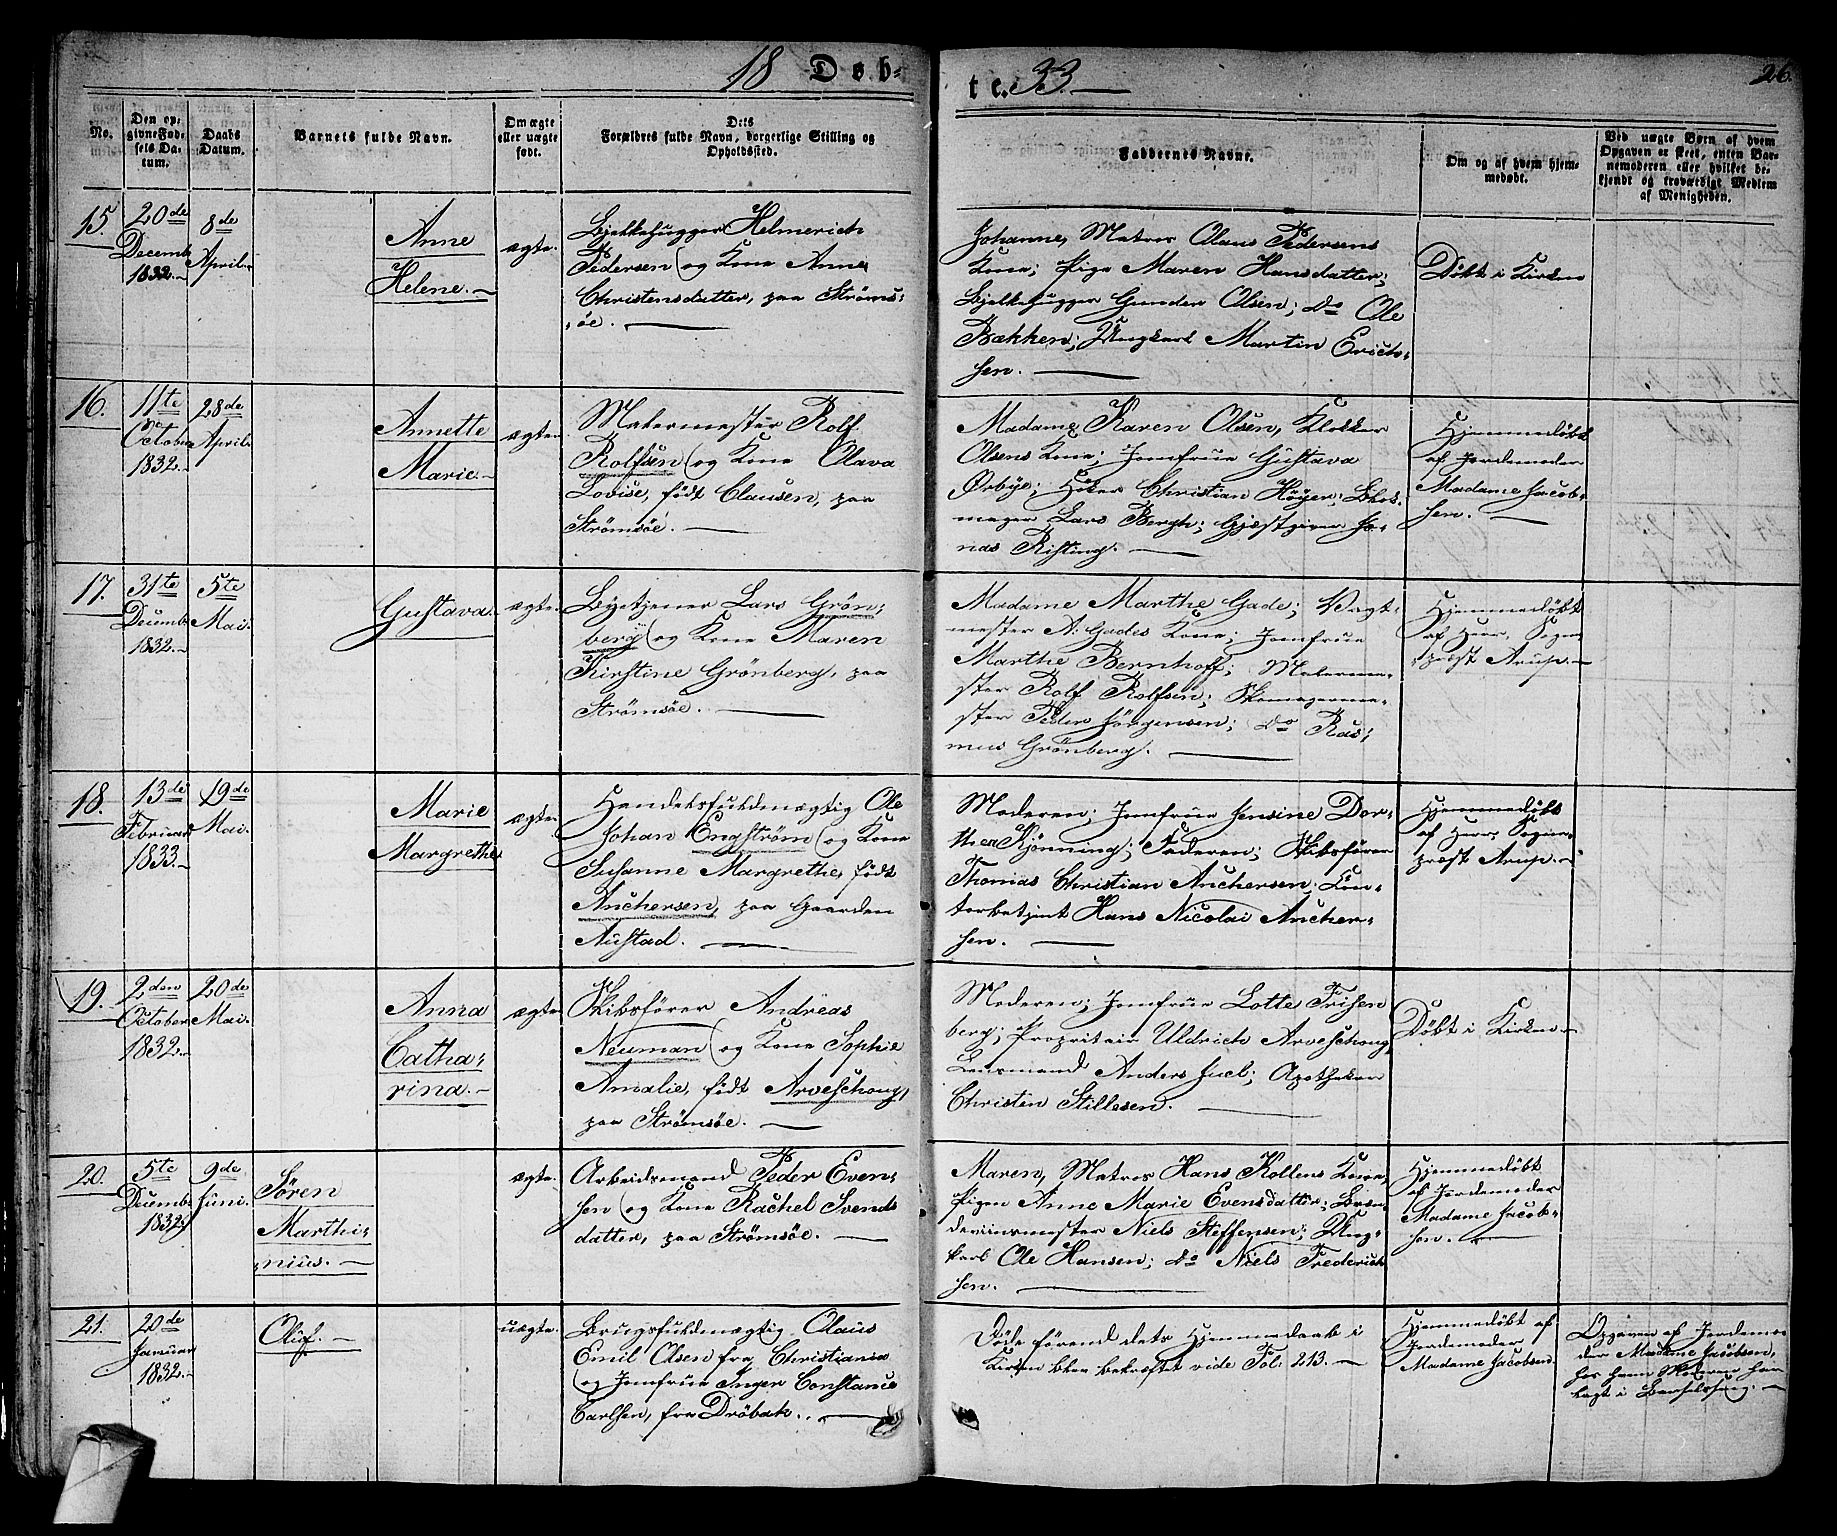 18 Døb-
te. 33.
26.
No.
Den op-
givne Fød-
sels Da-
tum.
Daabs
Datum.
Barnets fulde Navn.
Om ægte
eller uægte
født.
Dets
Forældres fulde Navn, borgerlige Stilling og
Opholdssted.
Faddernes Navne.
Om og af hvem hjem-
medøbt.
Ved uægte Børn af hvem
Opgaven er skeet, enten Bar-
nemoderen eller hvilket be-
kjendt og troværdigt Medlem
af Menigheden.
15.
20de
Decemb
1832.
8de
April.
Anne
Helene.
ægte.
Bjelkehugger Helmerich
Pedersen og Kone Anne
Christensdatter, paa Strøms-
øe.
Johanne, Matros Olaus Pedersens
Kone; Pige Maren Hansdatter;
Bjelkehugger Gunder Olsen; do Ole
Bækken; Ungkarl Martin Erich-
sen.
Døbt i Kirken
16.
11te
October
1832.
28de
April.
Annette
Marie.
ægte.
Malermester Rolf
Rolfsen og Kone Olava
Lovise, født Clausen, paa
Strømsøe.
Madame Karen Olsen, Klokker
Olsens Kone; Jomfrue Gustava
Ørbye; Høker Christian Höyer; Blok-
mager Lars Bergh; Gjæstgiver Jo-
nas Risting.
Hjemmedøbt
af Jordemoder
Madame Jacob-
sen.
17.
31te
Decemb
1832.
5te
Mai.
Gustava.
ægte.
Byetjener Lars Grøn-
berg og Kone Maren
Kirstine Grønberg, paa
Strømsøe.
Madame Marthe Gade; Vagt-
mester A: Gades Kone; Jomfrue
Marthe Bernhoff; Malerme-
ster Rolf Rolfsen; Skomagerme-
ster Peder Jörgensen; do Ras-
mus Grönberg.
Hjemmedøbt
af Herr Sogne-
præst Arup.
18.
13de
Februar
1833.
19de
Mai.
Marie
Margrethe
ægte.
Handelsfuldmægtig Ole
Johan Engstrøm og Kone
Susanne Margrethe, født
Anchersen, paa Gaarden
Austad.
Moderen; Jomfrue Jensine Dor-
thea Kjönning; Faderen; Skibsfører
Thomas Christian Anchersen; Con-
torbetjent Hans Nicolai Ancher-
sen.
Hjemmedøbt
af Herr Sogne-
præst Arup.
19.
2den
October
1832.
20de
Mai.
Anna
Catha-
rina.
ægte.
Skibsfører Andreas
Neuman og Kone Sophie
Amalie, født Arveschoug,
paa Strømsøe.
Moderen; Jomfrue Lotte Frisen
berg; Propritair Uldrich Arveschoug,
Lensmand Anders Juel; Apotheker
Christen Stillesen.
Døbt i Kirken.
20.
5te
Decemb
1832.
9de
Juni.
Søren
Marthi-
nius.
ægte.
Arbeidsmand Peder Even-
sen og Kone Rachel Svends
datter, paa Strømsøe.
Maren, Matros Hans Kollens Kone
Pigen Anne Marie Evensdatter; Bræn-
deviinsmester Niels Steffensen; Ung-
karl Ole Hansen; do Niels Frederich
sen.
Hjemmedøbt
af Jordemoder
Madame Jacob-
sen.
21.
20de
Januar
1832.
Oluf.
uægte.
Brugsfuldmægtig Olaus
Emil Olsen fra Christiania
og Jomfrue Inger Constance
Carlsen, fra Drøbak.
Døde førend dets Hjemmedaab i
Kirken blev bekræftet vide Fol: 213.
Hjemmedøbt af
Jordemoder
Madame Jacobsen.
Opgaven af Jordemo-
der Madame Jacobsen,
hos hvem Moderen har
lagt i Barselseng.